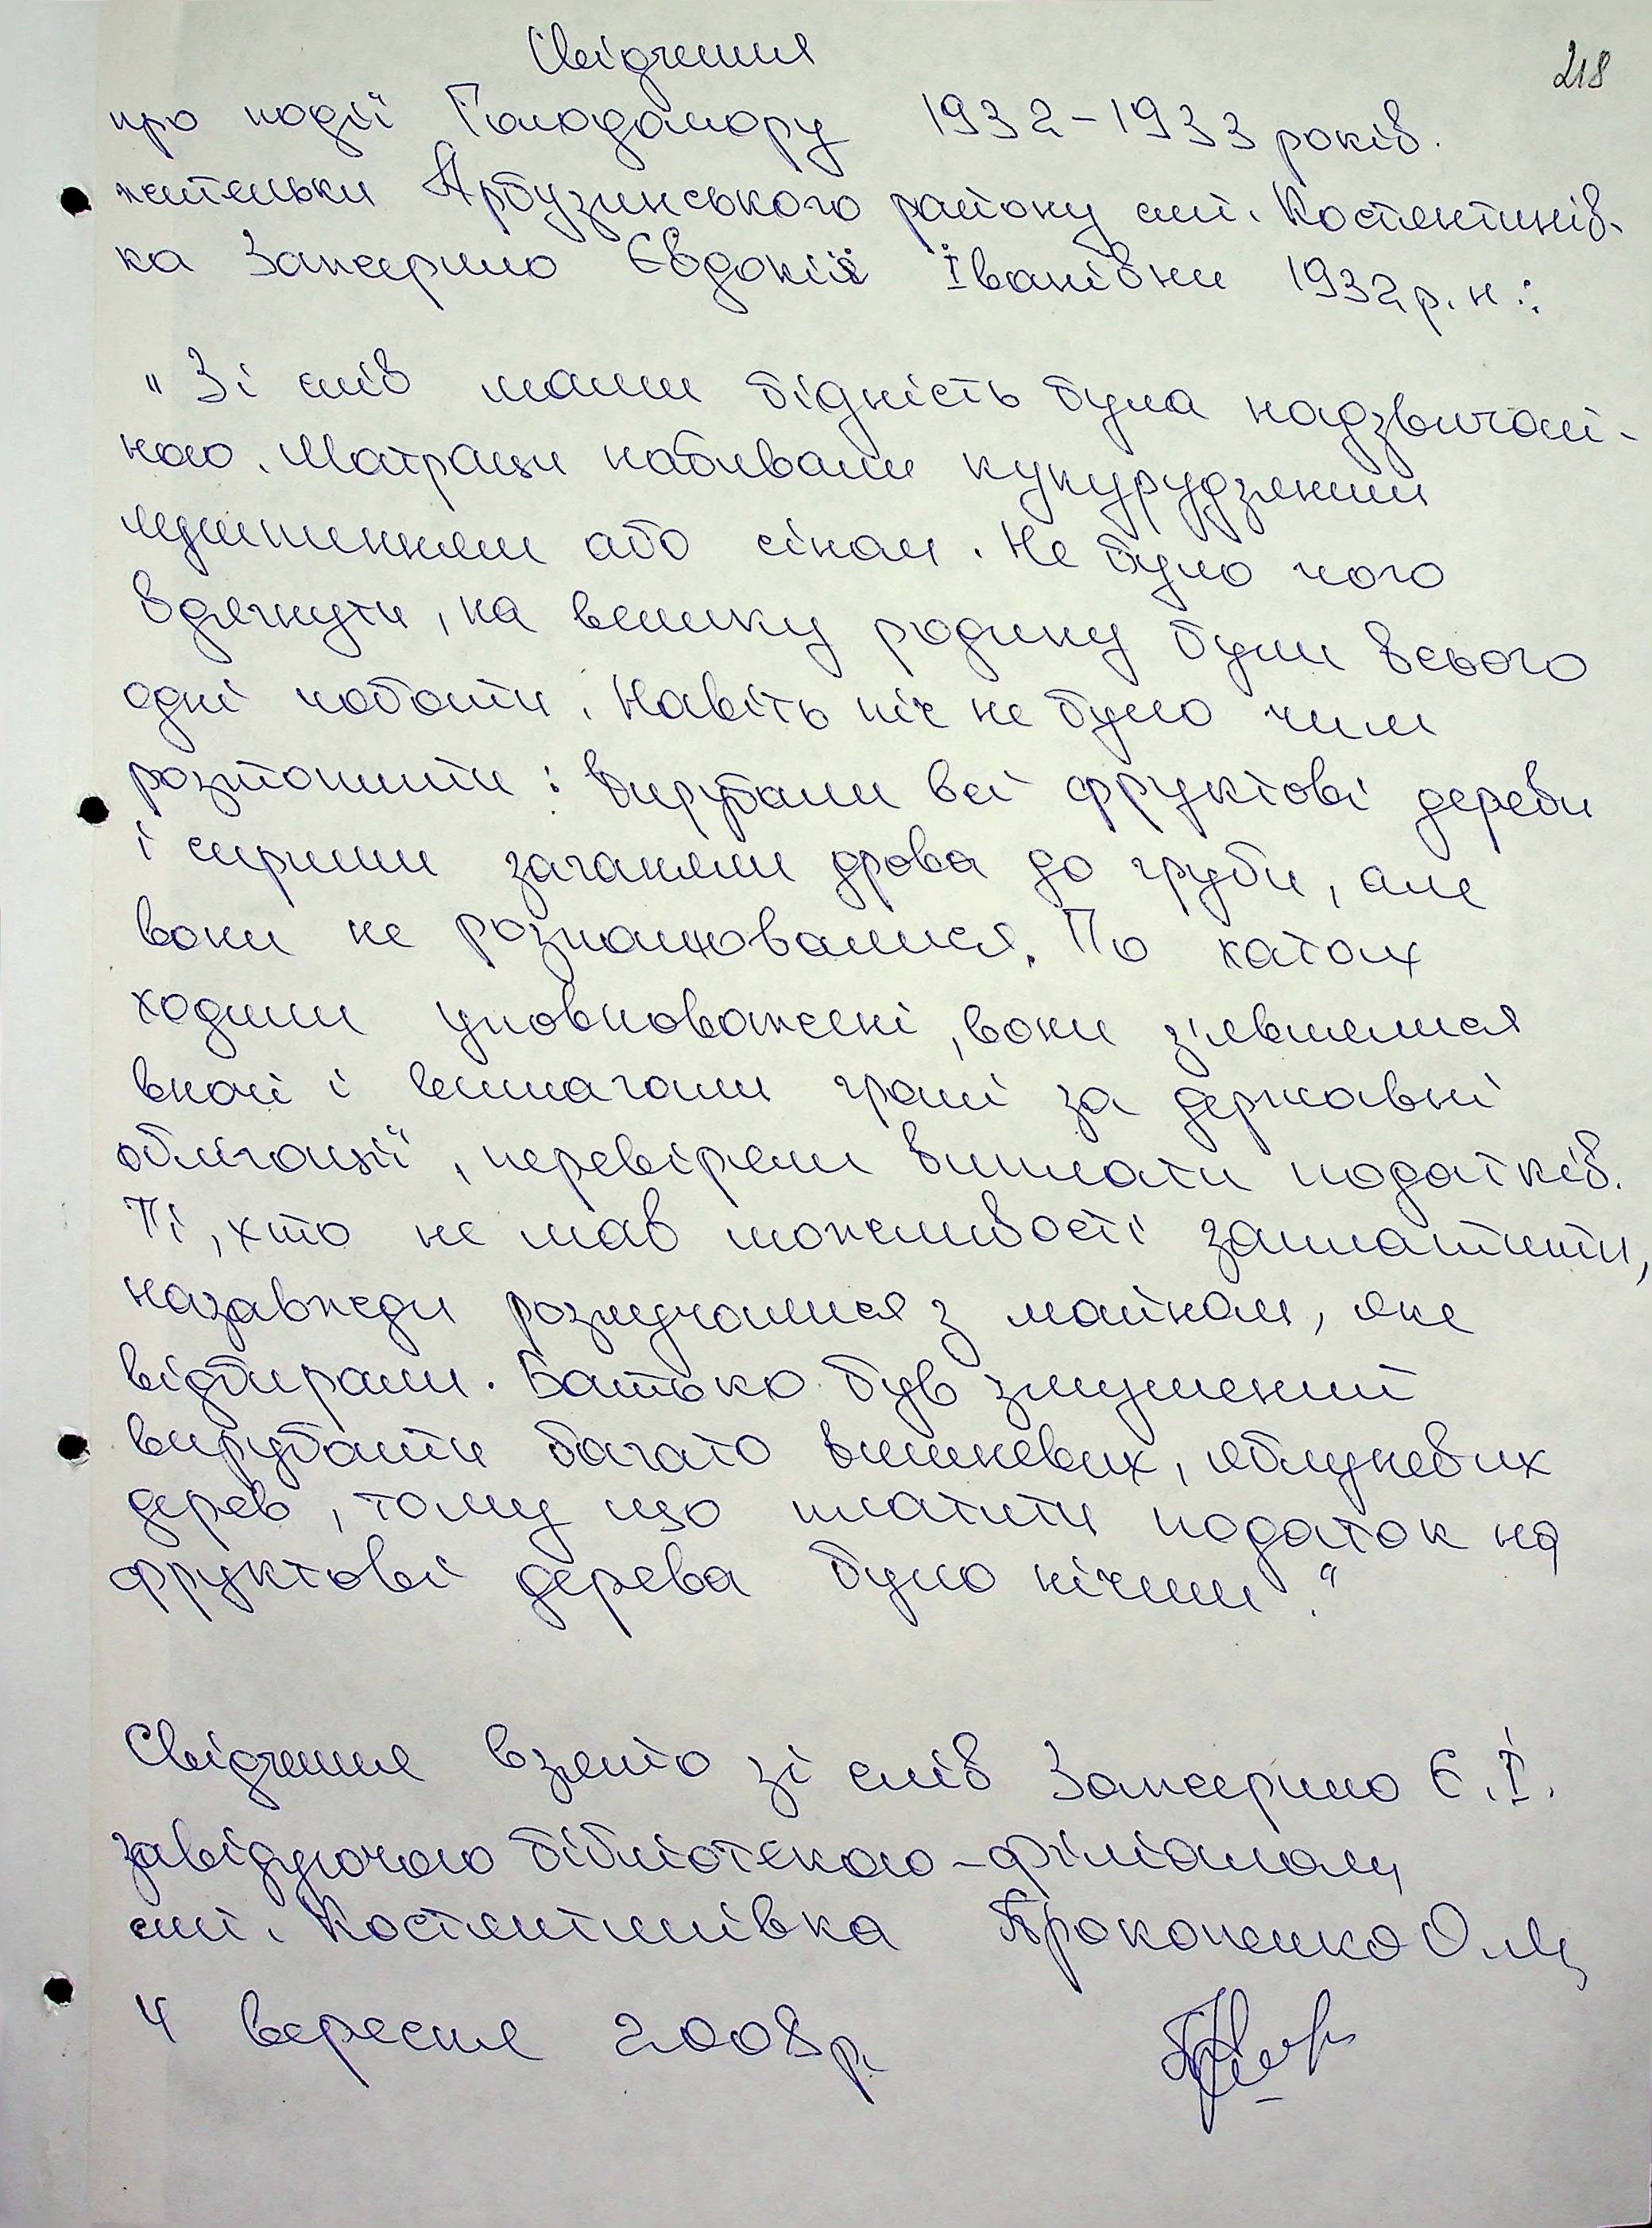 218
Свідчення
про події Голодомору 1932-1933 років.
жительки Арбузинського району смт. Костянтинів-
ка Занчерило Євдокії Іванівни 1932 р. н.:
"Зі слів мами бідність була надзвичай-
ною. Матраци набивали кукурудзяним
лушпинням або сіном. Не було чого
вдягнути, на велику родину були всього
одні чоботи. Навіть піч не було чим
розтопити: вирубали всі фруктові дерева
і сирими заганяли дрова до груби, але
вони не розпалювалися. По хатах
ходили уповноважені, вони з'являлися
вночі і вимагали гроші за державні
облігації, перевіряли виплати податків.
Ті, хто не мав можливості заплатити,
назавжди розлучалися з майном, яке
відбирали. Батько був змушений
вирубати багато вишневих, яблуневих
дерев, тому що платити податок на
фруктові дерева було нічим."
Свідчення взято зі слів Є. І.
завідуючою бібліотекою-філіалом
смт. Костянтинівка Прокопенко О.М.
4 вересня 2008 р.